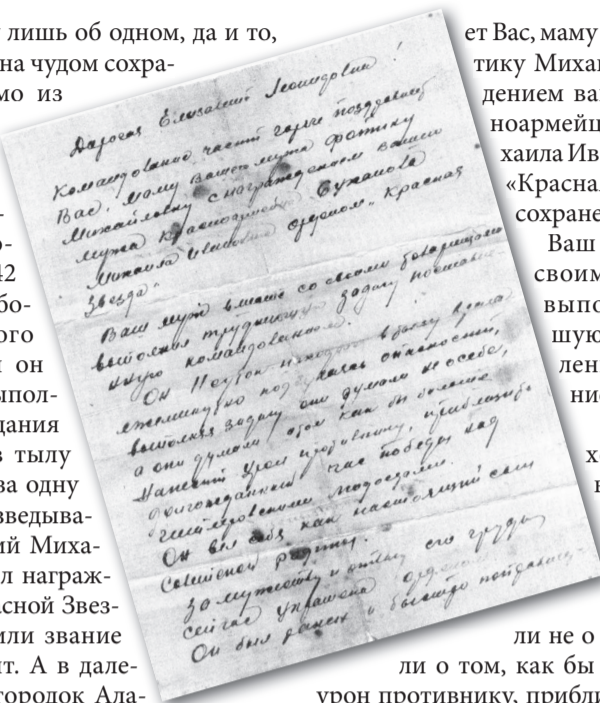 лишь об одном, да и то,
на чудом сохра-
мо из
-
о-
42
бо-
ого
он
ыпол-
дания
в тылу
за одну
зведыва-
ий Миха-
л награж-
асной Звез-
или звание
нт. А в дале-
городок Ала-
Дорогая Елизавета Леонидовна!
Командование части горячо поздравляет
Вас, маму Вашего мужа Фотику
Михайловну с награждением вашего
мужа Красноармейца Суханова
Михаила Ивановича орденом „Красная
Звезда"
Ваш муж вместе со своими товарищами
выполнял труднейшую задачу поставлен-
ную командованием.
Он 11 суток находясь в тылу врага
ежеминутно подвергаясь опасностям,
выполняя задачу они думали не о себе,
а они думали о том как бы больше
нанести урон противнику, приблизить
долгожданный час победы над
гитлеровскими мерзавцами.
Он вел себя как настоящий сын
советской родины.
За мужество и отвагу его грудь
сейчас украшена орденом
Он был ранен и быстро
ет Вас, маму
тику Миха
дением ва
ноармейц
хаила Ив
«Красна
сохране
Ваш
своим
выпо
шую
лен
ни
х
ли не о
ли о том, как бы
урон противнику, прибли